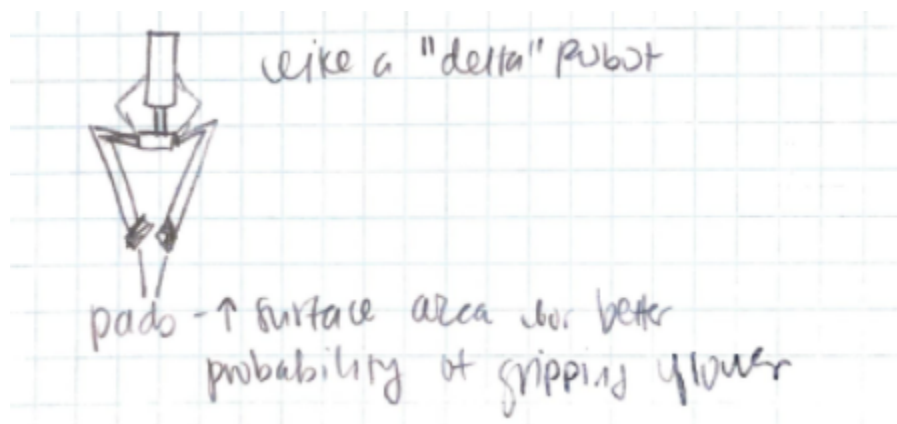 like a "delta" robot
pads - ↑ surface area for better
probability of gripping flower